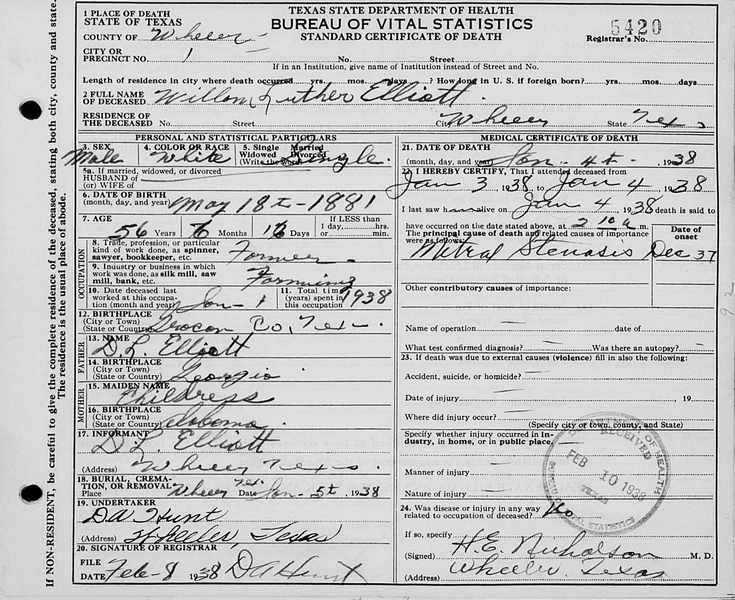 TEXAS STATE DEPARTMENT OF HEALTH
BUREAU OF VITAL STATISTICS
STANDARD CERTIFICATE OF DEATH
5420
Registrar's No.
1 PLACE OF DEATH
STATE OF TEXAS
COUNTY OF Wheeler
CITY OR
PRECINCT NO. 1 No. Street
If in an Institution, give name of Institution instead of Street and No.
Length of residence in city where death occurred yrs. mos. days ? How long in U. S. if foreign born? yrs. mos. days
2 FULL NAME
OF DECEASED Luther Elliott
RESIDENCE OF
THE DECEASED No. Street City Wheeler State Texas
PERSONAL AND STATISTICAL PARTICULARS
3. SEX Male 4. COLOR OR RACE White 5. Single Married Widowed Divorced (Write the word) Single
5a. If married, widowed, or divorced
HUSBAND OF
(or) WIFE OF
6. DATE OF BIRTH
(month, day, and year) May 18th - 1881
7. AGE 56 Years Months 16 Days If LESS than 1 day, hrs. or min.
OCCUPATION
8. Trade, profession, or particular
kind of work done, as spinner,
sawyer, bookkeeper, etc. Farmer
9. Industry or business in which
work was done, as silk mill, saw
mill, bank, etc. Farming
10. Date deceased last
worked at this occupation
(month and year) Jan - 1 1938
11. Total time (years)
spent in this
occupation
12. BIRTHPLACE
(City or Town)
(State or Country) Co, Tex.
FATHER
13. NAME
D. L. Elliott
14. BIRTHPLACE
(City or Town)
(State or Country) Georgia
MOTHER
15. MAIDEN NAME
Childress
16. BIRTHPLACE
(City or Town)
(State or Country) Alabama
17. INFORMANT
D. L. Elliott
(Address) Wheeler Texas.
18. BURIAL, CREMATION, OR REMOVAL
Place Wheeler Tex. Date Jan - 5th, 1938
19. UNDERTAKER
D A Hunt
Wheeler, Texas
20. SIGNATURE OF REGISTRAR
FILE
DATE Feb - 8 1938 D A Hunt
MEDICAL CERTIFICATE OF DEATH
21. DATE OF DEATH
(month, day, and year) Jan - 4th - , 1938
22. I HEREBY CERTIFY, That I attended deceased from
Jan 3 1938 to Jan 4 1938
I last saw h alive on Jan 4, 1938 death is said to
have occurred on the date stated above, at m.
The principal cause of death and related causes of importance
were as follows:
Date of
onset
Mitral Stenosis Dec 37
Other contributory causes of importance:
Name of operation date of
What test confirmed diagnosis? Was there an autopsy?
23. If death was due to external causes (violence) fill in also the following:
Accident, suicide, or homicide?
Date of injury 19
Where did injury occur?
(Specify city or town, county, and State)
Specify whether injury occurred in Industry, in home, or in public place,
Manner of injury
Nature of injury
24. Was disease or injury in any way
related to occupation of deceased? No
If so, specify
(Signed) H. E. Nicholson M. D.
(Address) Wheeler, Texas
DEPARTMENT OF HEALTH
RECEIVED
FEB 10 1938
TEXAS
BUREAU VITAL STATISTICS
92
If NON-RESIDENT, be careful to give the complete residence of the deceased, stating both city, county and state.
The residence is the usual place of abode.